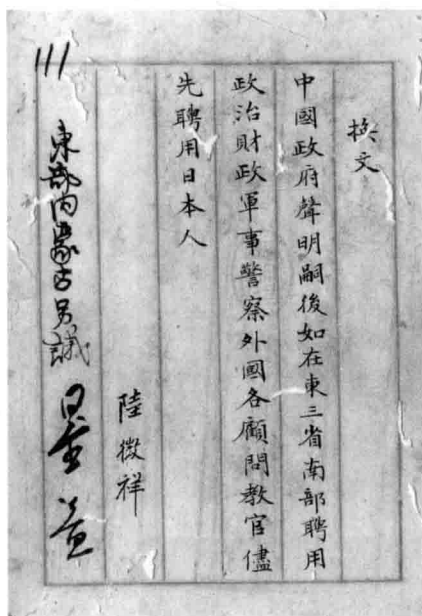 換文
中國政府聲明嗣後如在東三省南部聘用
政治財政軍事警察外國各顧問教官儘
先聘用日本人
陸徵祥
東部內蒙古另議
日置益
111